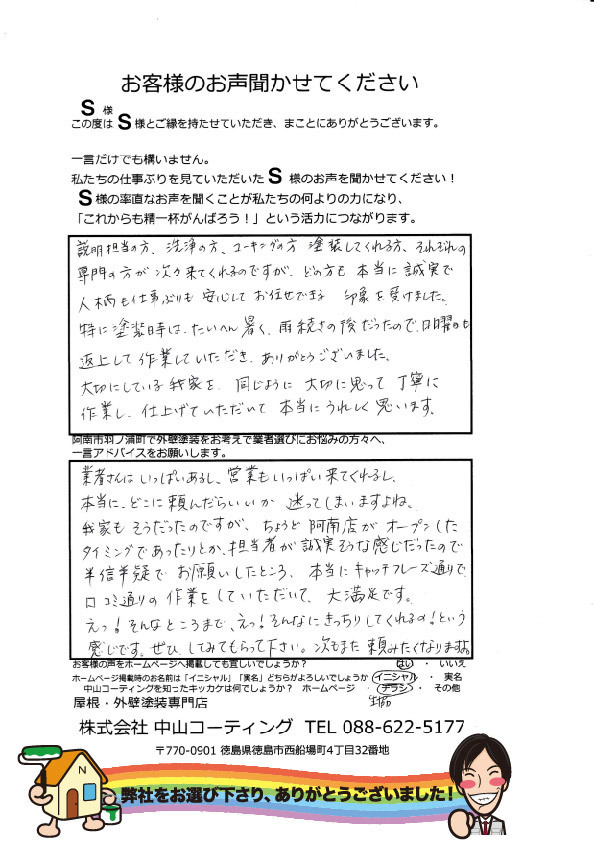 お客様のお声聞かせてください
S 様
この度は S 様とご縁を持たせていただき、まことにありがとうございます。
一言だけでも構いません。
私たちの仕事ぶりを見ていただいた S 様のお声を聞かせてください！
S 様の率直なお声を聞くことが私たちの何よりの力になり、
「これからも精一杯がんばろう！」という活力につながります。
説明担当の方、洗浄の方、コーキングの方 塗装してくれる方、それぞれの
専門の方が次々来てくれるのですが、どの方も本当に誠実で
人柄も仕事ぶりも安心してお任せできる 印象を受けました。
特に塗装時は、たいへん暑く、雨続きの後だったので、日曜日も
返上して作業していただき、ありがとうございました。
大切にしている我家を、同じように大切に思って丁寧に
作業し、仕上げていただいて本当にうれしく思います。
阿南市羽ノ浦町で外壁塗装をお考えで業者選びにお悩みの方々へ、
一言アドバイスをお願いします。
業者さんはいっぱいあるし、営業もいっぱい来てくれるし、
本当に、どこに頼んだらいいか 迷ってしまいますよね。
我家もそうだったのですが、ちょうど阿南店がオープンした
タイミングであったりとか、担当者が誠実そうな感じだったので
半信半疑でお願いしたところ、本当にキャッチフレーズ通りで、
口コミ通りの作業をしていただいて、大満足です。
えっ！そんなところまで、えっ！そんなにきっちりしてくれるの！という
感じです。ぜひ、してみてもらって下さい。次もまた頼みたくなりますよ。
お客様の声をホームページへ掲載しても宜しいでしょうか？ はい ・ いいえ
ホームページ掲載時のお名前は「イニシャル」「実名」どちらがよろしいでしょうか イニシャル ・ 実名
中山コーティングを知ったキッカケは何でしょうか？ ホームページ ・ チラシ ・ その他
屋根・外壁塗装専門店
株式会社 中山コーティング TEL 088-622-5177
〒770-0901 徳島県徳島市西船場町4丁目32番地
N
弊社をお選び下さり、ありがとうございました！